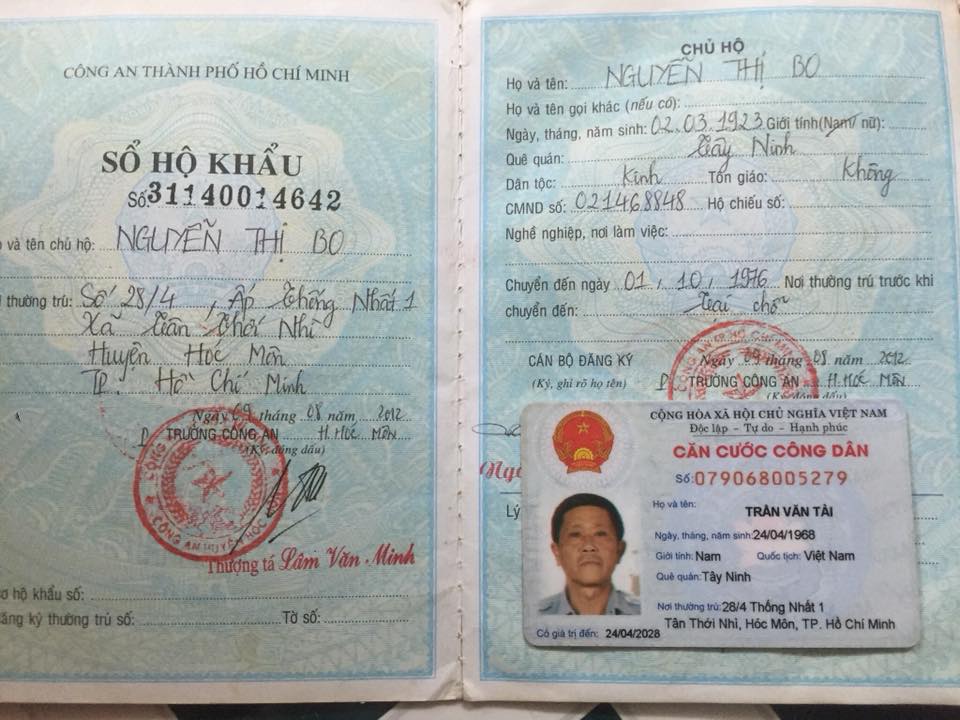 CÔNG AN THÀNH PHỐ HỒ CHÍ MINH
SỔ HỘ KHẨU
Số: 31140014642
ọ và tên chủ hộ: NGUYỄN THỊ BO
i thường trú: Số 28/4, Ấp Thống Nhất 1
Xã Tân Thới Nhì
Huyện Hóc Môn
TP. Hồ Chí Minh
Ngày 09 tháng 08 năm 2012
TRƯỞNG CÔNG AN H. HÓC MÔN
(Ký, đóng dấu)
CÔNG AN HUYỆN HÓC
Thượng tá Lâm Văn Minh
ơ hộ khẩu số:
ăng ký thường trú số: Tờ số:
CHỦ HỘ
Họ và tên: NGUYỄN THỊ BO
Họ và tên gọi khác (nếu có):
Ngày, tháng, năm sinh: 02.03.1923 Giới tính (Nam/ nữ):
Quê quán: Tây Ninh
Dân tộc: Kinh Tôn giáo: Không
CMND số: 021468848 Hộ chiếu số:
Nghề nghiệp, nơi làm việc:
Chuyển đến ngày 01, 10, 1976 Nơi thường trú trước khi
chuyển đến: Tại chỗ
Ngày 09 tháng 08 năm 2012
CÁN BỘ ĐĂNG KÝ TRƯỞNG CÔNG AN H. HÓC MÔN
(Ký, ghi rõ họ tên) (Ký, đóng dấu)
Lý
CỘNG HÒA XÃ HỘI CHỦ NGHĨA VIỆT NAM
Độc lập - Tự do - Hạnh phúc
CĂN CƯỚC CÔNG DÂN
Số: 079068005279
Họ và tên:
TRẦN VĂN TÀI
Ngày, tháng, năm sinh: 24/04/1968
Giới tính: Nam Quốc tịch: Việt Nam
Quê quán: Tây Ninh
Nơi thường trú: 28/4 Thống Nhất 1
Tân Thới Nhì, Hóc Môn, TP. Hồ Chí Minh
Có giá trị đến: 24/04/2028